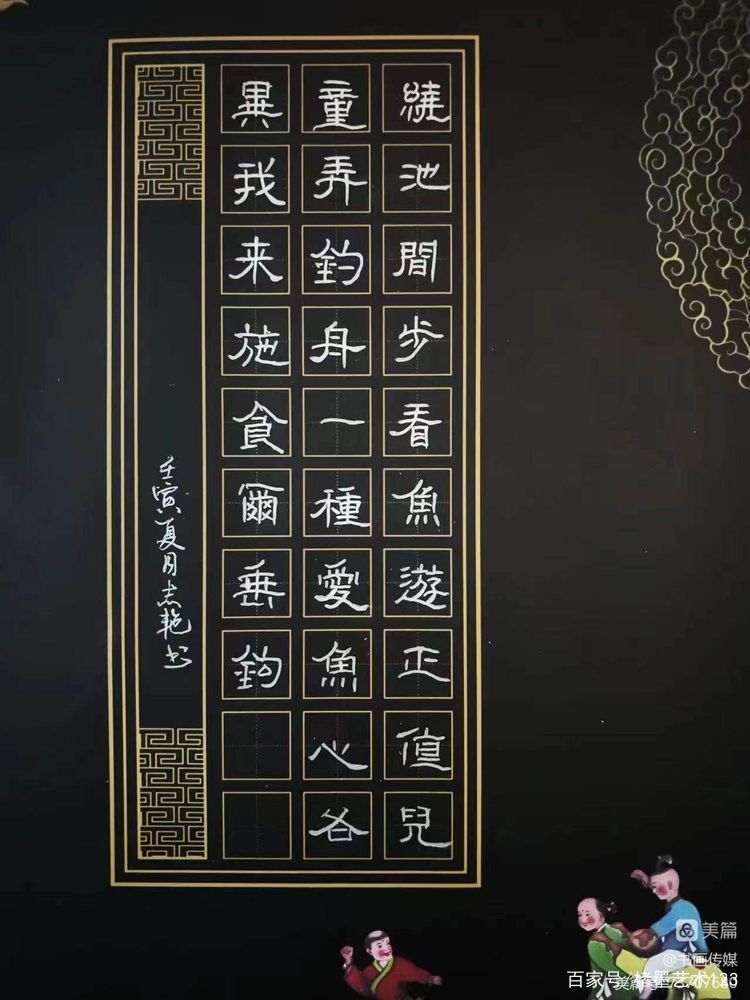 繞池間步看魚遊正值兒
童弄釣舟一種愛魚心各
異我来施食爾垂鉤
壬寅夏月志艳书
美篇
@书画传媒
百家号/楮墨艺术123